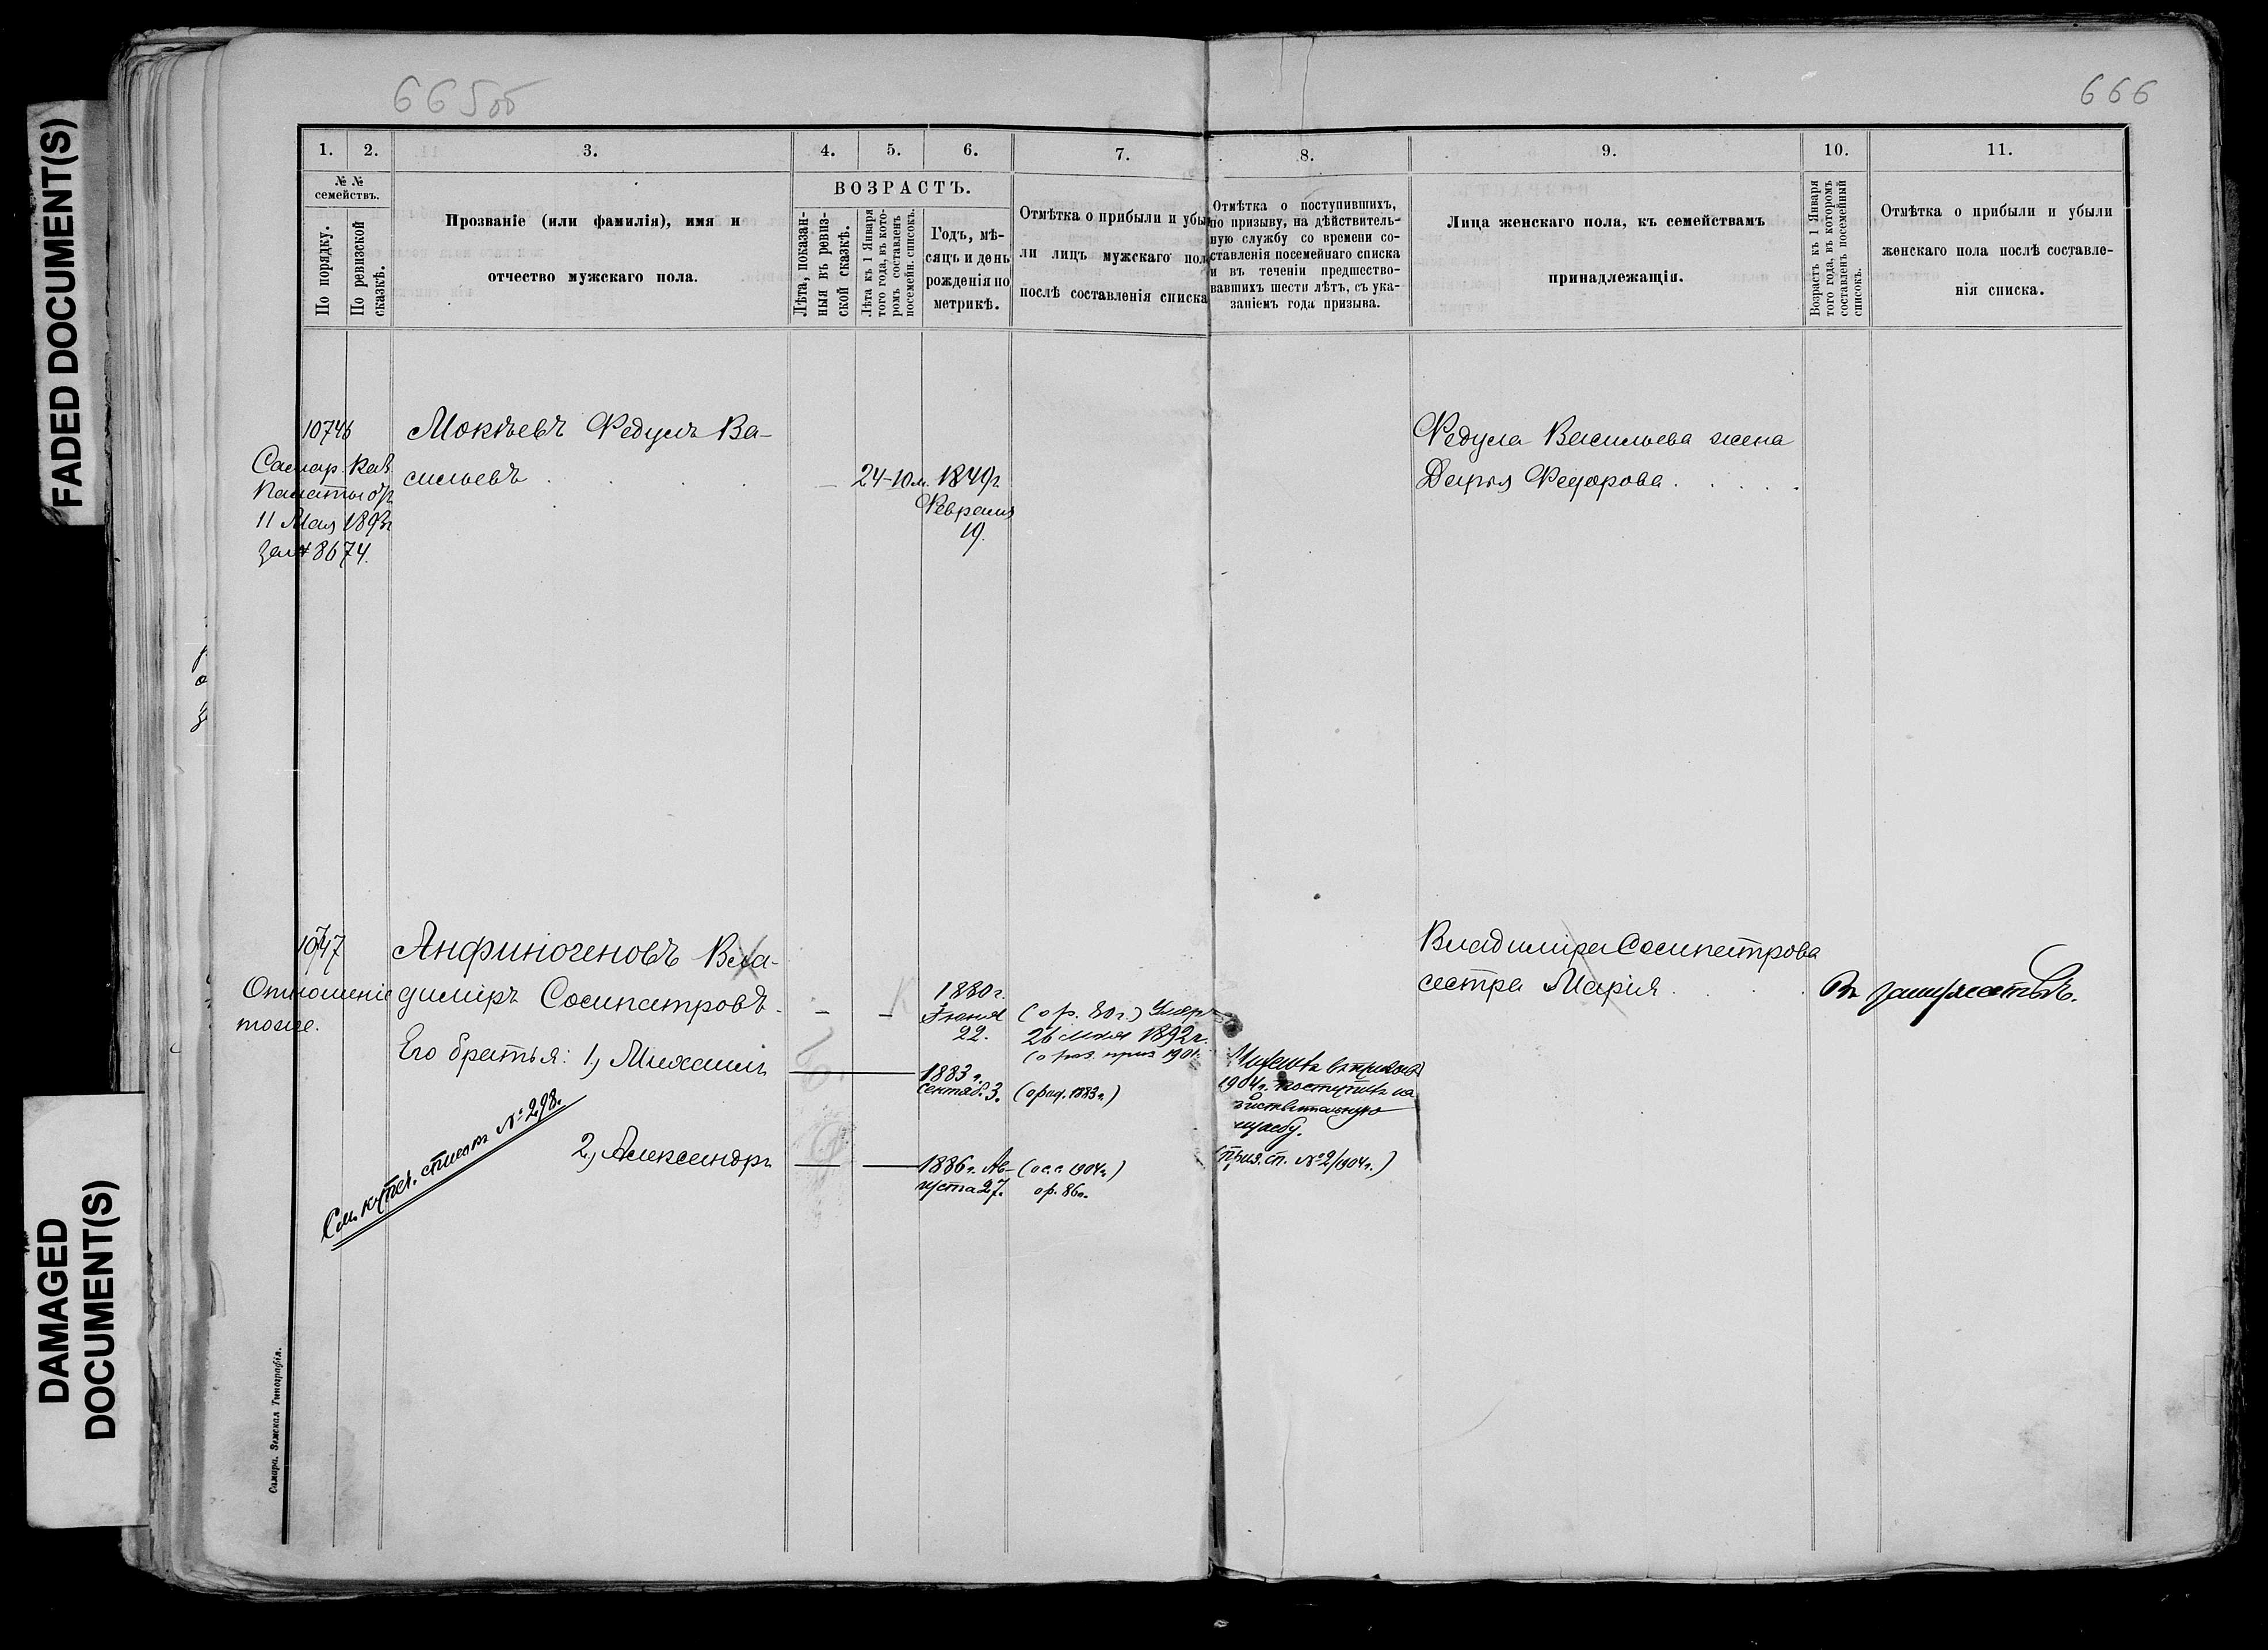 FADED DOCUMENT(S)
DAMAGED
DOCUMENT(S)
665об
666
1.
2.
3.
4.
5.
6.
7.
8.
9.
10.
11.
№ №
семействъ.
По порядку.
По ревизской
сказкѣ.
Прозваніе (или фамилія), имя и
отчество мужскаго пола.
ВОЗРАСТЪ.
Лѣта, показан-
ныя въ ревиз-
ской сказкѣ.
Лѣта къ 1 Января
того года, въ кото-
ромъ составленъ
посемейн. списокъ.
Годъ, мѣ-
сяцъ и день
рожденія по
метрикѣ.
Отмѣтка о прибыли и убы-
ли лицъ мужскаго пол
послѣ составленія списка
Отмѣтка о поступившихъ,
по призыву, на дѣйствитель-
ную службу со времени со-
ставленія посемейнаго списка
и въ теченіи предшество-
вавшихъ шести лѣтъ, съ ука-
заніемъ года призыва.
Лица женскаго пола, къ семействамъ
принадлежащія.
Возрастъ къ 1 Января
того года, въ которомъ
составленъ посемейный
списокъ.
Отмѣтка о прибыли и убыли
женскаго пола послѣ составле-
нія списка.
10746
Самар. Каз.
Палаты от
11 Мая
за № 8674.
Мокѣевъ Федулъ Ва-
сильевъ
24-10м.
1849г.
Февраля
19.
Федула Васильева жена
Дарья Федорова
10747
Отношеніе
тоже.
Анфиногеновъ Вла-
димiръ Сосипатровъ.
Его братья: 1, Михаилъ
2, Александръ
См. купеч. списокъ № 298.
1880г.
Iюня
22.
(о р. 80г.) Умеръ
26 Мая 1892г.
1883 г.
Сентяб. 3.
(о род. 1883г.)
1886г. Ав-
густа 27.
1904г.)
о р. 86г.
1904г. поступилъ на
дѣйствительную
службу.
(приз. сп. № 2/1904г.)
Владимiра Сосипатрова
сестра Марiя
Въ замужествѣ.
Самара. Земская Типографія.